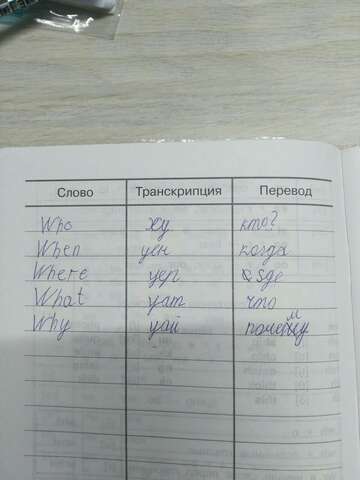 Слово Транскрипция Перевод
Who ху кто?
When уен когда
Where уер где
What уат что
Why уай почему